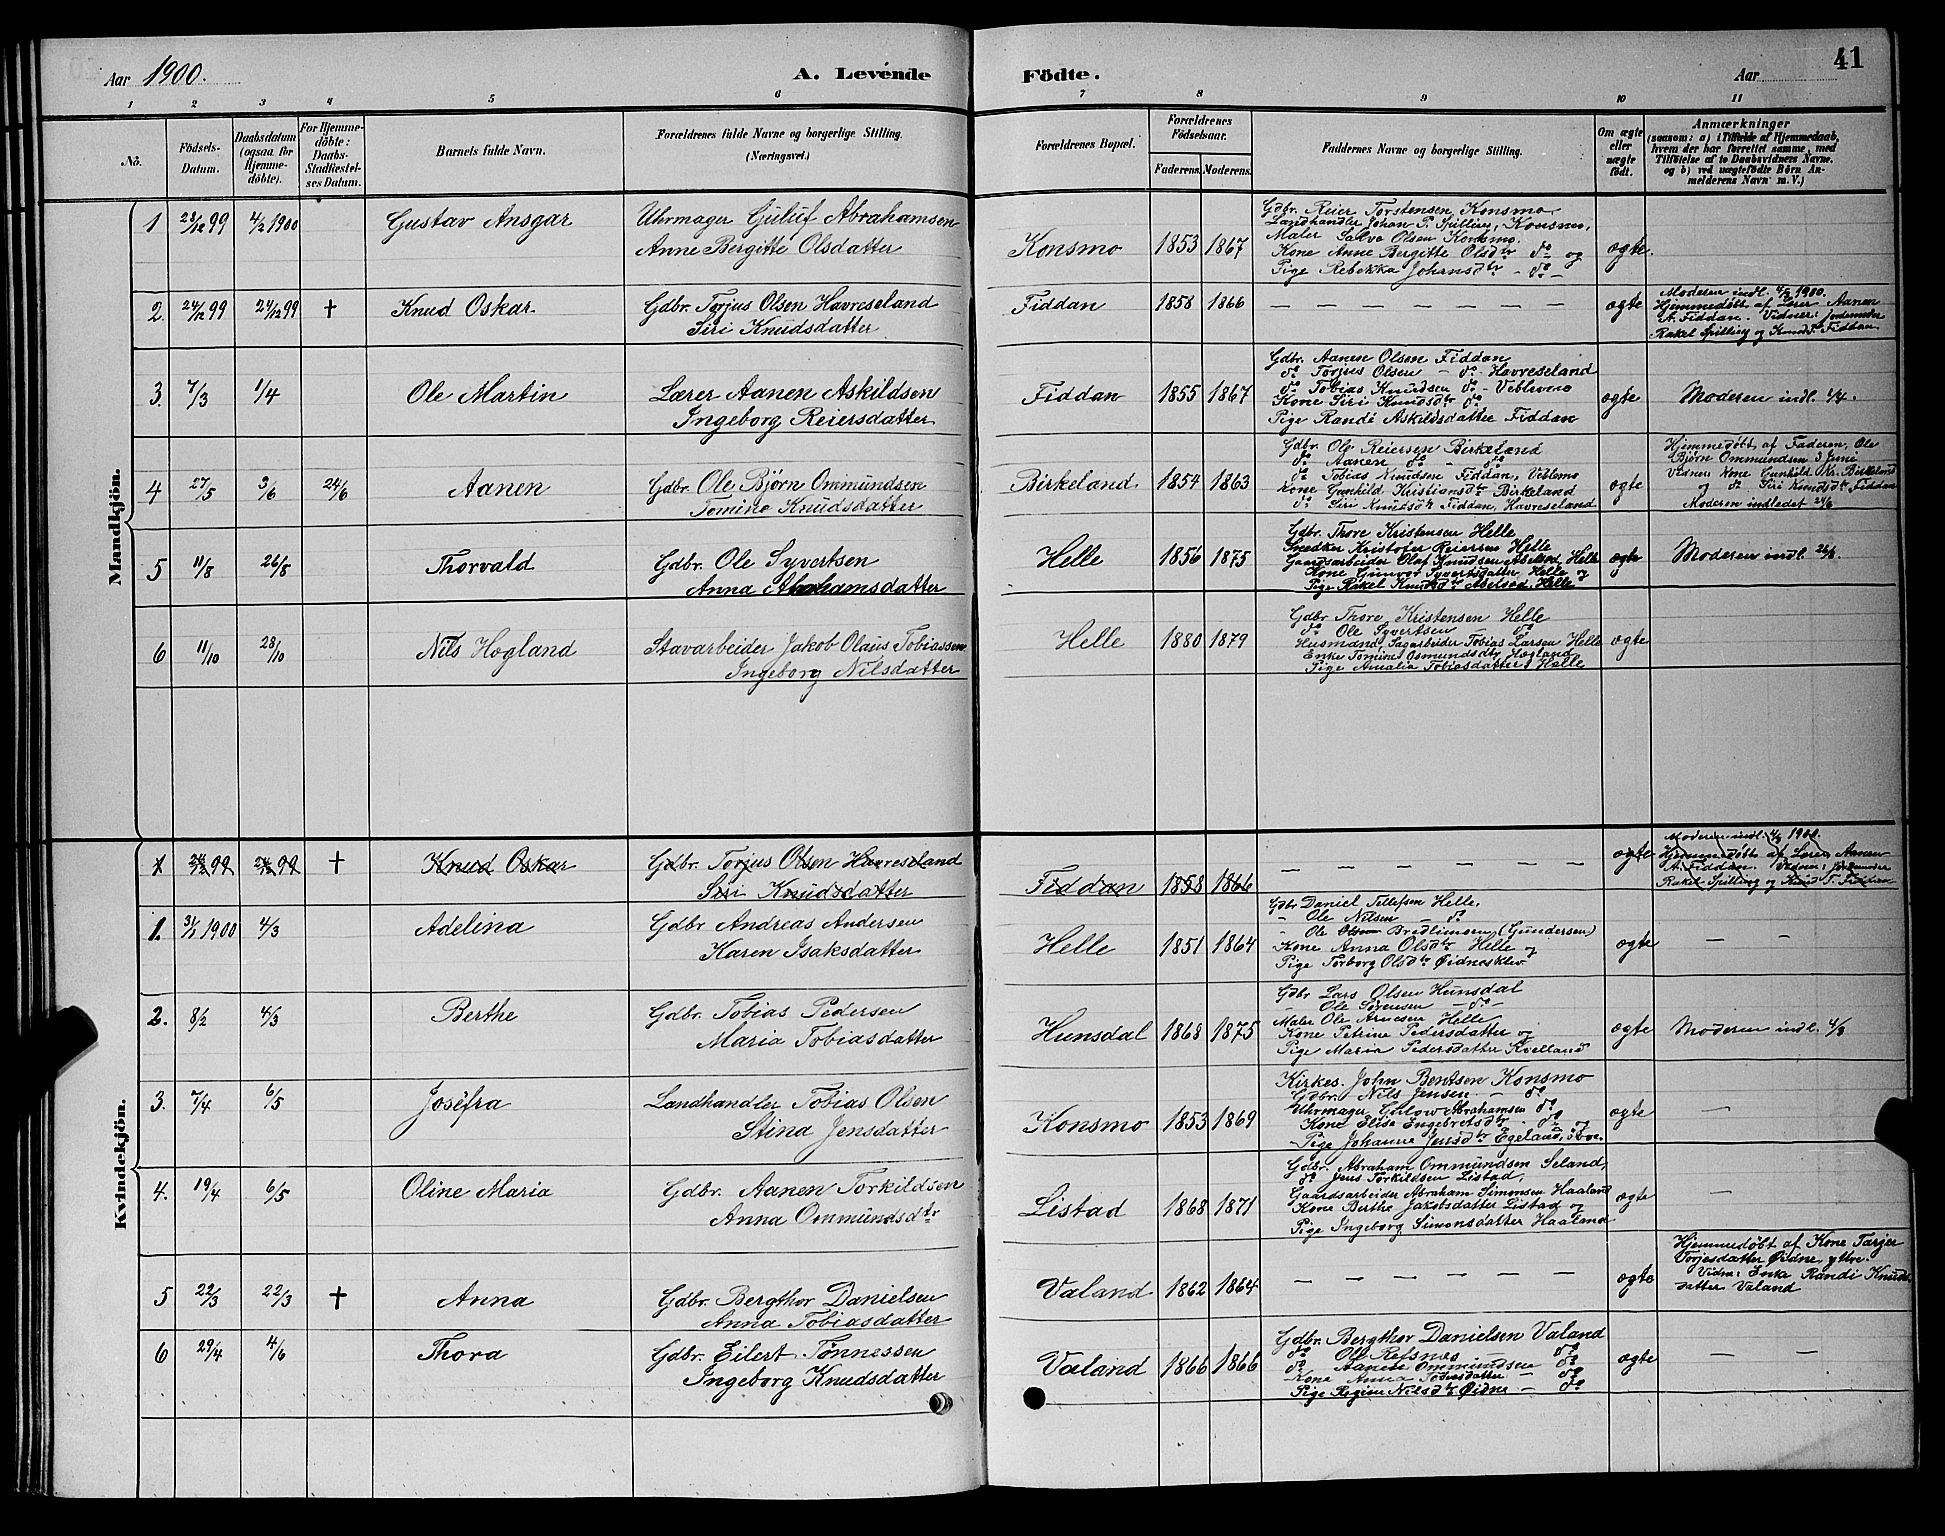 Aar 1900.
A. Levende Födte.
Aar
41
1 2 3 4 5 6 7 8 9 10 11
No.
Födsels-Datum.
Daabsdatum (ogsaa for Hjemme-döbte).
For Hjemme-döbte: Daabs-Stadfæstel-ses Datum.
Barnets fulde Navn.
Forældrenes fulde Navne og borgerlige Stilling. (Næringsvei.)
Forældrenes Bopæl.
Forældrenes Födselsaar.
Faderens. Moderens.
Faddernes Navne og borgerlige Stilling.
Om ægte eller uægte födt.
Anmærkninger
(saasom: a) i Tilfælde af Hjemmedaab, hvem der har forrettet samme, med Tilföielse af to Daabsvidners Navne. og b) ved uægtefödte Börn An-melderens Navn m. V.)
Mandkjön.
1 28/12 99 4/2 1900 Gustav Ansgar
Uhrmager Guluf Abrahamsen
Anne Bergitte Olsdatter
Konsmo 1853 1867
Gdbr. Reier Torstensen Konsmo
Landhandler Johan P. Spilling, Konsmo,
Maler Salve Olsen Konsmo.
Kone Anne Bergitte Olsdtr do og
Pige Rebekka Johnsdtr - do -
ægte.
2. 24/12 99 24/12 99 † Knud Oskar
Gdbr. Torjus Olsen Havreseland
Siri Knudsdatter
Fiddan 1858 1866
— — — — — — —
ægte
Moderen indl. 4/2 1900.
Hjemmedøbt af Lærer Aanen
A. Fiddan. Vidner: Jordemoder
Rakel Spilling og Knud T. Fiddan
3. 7/3 1/4 Ole Martin
Lærer Aanen Askildsen
Ingeborg Reiersdatter
Fiddan 1855 1867
Gdbr. Aanen Olsen Fiddan
do Torjus Olsen - do - Havreseland
do Tobias Knudsen do - Veblemo
Kone Siri Knudsdtr do
Pige Randi Askildsdatter Fiddan
ægte
Moderen indl. 1/4.
4 27/5 3/6 24/6 Aanen
Gdbr. Ole Bjørn Ommundsen
Tomine Knudsdatter
Birkeland. 1854 1863
Gdbr. Ole Reiersen Birkeland
do Aanen do - do
do Tobias Knudsen Fiddan, Veblemo
Kone Gunhild Kristiansdtr Birkeland
do Siri Knudsdtr Fiddan, Havreseland
ægte
Hjemmedøbt af Faderen, Ole
Bjørn Ommundsen 3 Juni
Vidner Kone Gunhild Kr. Birkeland
og do Siri Knudsdtr Fiddan
Moderen indledet 24/6
5 11/8 26/8 Thorvald
Gdbr. Ole Syvertsen
Anna Abrahamsdatter
Helle 1856 1875
Gdbr. Thore Kristensen Helle
Snedker Kristofer Reiersen Helle
Gaardsarbeider Olaf Knudsen Abelsed, Helle
Kone Gunvor Syvertsdatter Helle og
Pige Rakel Knudsdtr Abelsed, Helle
ægte
Moderen indl. 26/8.
6 11/10 28/10 Nils Høgland
Stavarbeider Jakob Olaus Tobiassen
Ingeborg Nilsdatter
Helle 1880 1879
Gdbr Thore Kristensen Helle
do Ole Syvertsen - do
Husmand, Sagarbeider Tobias Larsen Helle
Enke Tomine Osmundsdtr Høgland
Pige Amalia Tobiasdatter Helle
ægte
Kvindekjön.
1 24/12 99 24/12 99 † Knud Oskar
Gdbr. Torjus Olsen Havreseland
Siri Knudsdatter
Fiddan 1858 1866
— — — — — —
ægte
Moderen indl. 4/2 1900.
Hjemmedøbt af Lærer Aanen
A. Fiddan. Vidner: Jordemoder
Rakel Spilling og Knud T. Fiddan
1. 31/1 1900 4/3 Adelina
Gdbr Andreas Andersen
Karen Isaksdatter
Helle 1851 1864
Gdbr Daniel Tellefsen Helle,
- Ole Nilsen - do
- Ole Olsen Bredlimoen (Gundersen)
Kone Anna Olsdtr Helle og
Pige Torborg Olsdtr Øidnesklev
ægte — —
2. 8/2 4/3 Berthe
Gdbr. Tobias Pedersen
Maria Tobiasdatter
Hunsdal 1868 1875
Gdbr Lars Olsen Hunsdal
- Ole Sørensen - do -
Maler Ole Arnesen Helle
Kone Petrine Pedersdatter og
Pige Maria Pedersdatter Kvelland
ægte
Moderen indl. 4/3
3. 7/4 6/5 Joséfra
Landhandler Tobias Olsen
Stina Jensdatter
Konsmo 1853 1869
Kirkes. John Bentsen Konsmo
Gdbr. Nils Jensen - do
Uhrmager Gulow Abrahamsen do
Kone Elise Engebretsdtr - do og
Pige Johanne Jensdtr Egeland, Øvre.
ægte —
4. 19/4 6/5 Oline Maria
Gdbr. Aanen Torkildsen
Anna Ommundsdtr
Listad 1868 1871
Gdbr. Abraham Ommundsen Seland,
do Jens Torkildsen Listad,
Gaardsarbeider Abraham Simonsen Haaland
Kone Berthe Jakobsdatter Listad og
Pige Ingeborg Simonsdatter Haaland
ægte —
5 22/3 22/3 † Anna
Gdbr. Bergthor Danielsen
Anna Tobiasdatter
Valand 1862 1864
— — — — — —
ægte
Hjemmedøbt af Kone Tarjer
Torjesdatter Øidne, yttre.
Vidne: Enke Randi Knuds-
datter Valand
6 29/4 4/6 Thora
Gdbr. Eilert Tønnessen
Ingeborg Knudsdatter
Valand 1866 1866
Gdbr. Bergthor Danielsen Valand
do Ole Refsnæs — do
do Aanen Ommundsen do
Kone Anna Tobiasdatter — do
Pige Regine Nilsdtr Øidne — do
ægte — —